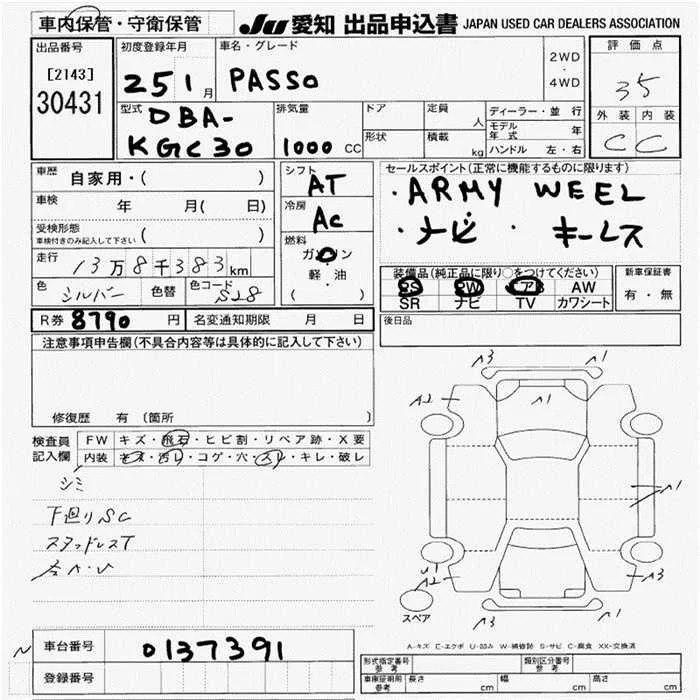 車内保管・守衛保管
JU 愛知 出品申込書 JAPAN USED CAR DEALERS ASSOCIATION
出品番号
[2143]
30431
初度登録年月
25 1 月
車名・グレード
PASSO
2WD
・
4WD
評価点
35
外装 内装
C C
型式
DBA-
KGC30
排気量
1000 CC
ドア
定員
人
形状
積載
kg
ディーラー・並行
モデル年式 年
ハンドル 左・右
車歴
自家用・( )
車検
年 月( 日)
受検形態
車検付きのみ記入して下さい ( )
走行
13万8千383km
色
シルバー
色替
色コード
S28
シフト
AT
冷房
AC
燃料
ガソリン
軽・油
( )
セールスポイント(正常に機能するものに限ります)
・ARMY WEEL
・ナビ ・キーレス
装備品(純正品に限り○をつけてください)
PS PW エアB AW
SR ナビ TV カワシート
新車保証書
有・無
R券 8790 円
名変通知期限 月 日
後日品
注意事項申告欄(不具合内容等は具体的に記入して下さい)
修復歴 有 (箇所 )
検査員
記入欄
FW キズ・飛石・ヒビ割・リペア跡・X要
内装 キズ・汚レ・コゲ・穴・スレ・キレ・破レ
シミ
下廻りSC
スタッドレスT
A3
A1
A2
A1
A1
U1
A2
A3
A3
A1
スペア
A-キズ E-エクボ U-凹み W-補修跡 S-サビ C-腐食 XX-交換済
車台番号
0137391
登録番号
形式指定番号
参考
類別区分番号
参考
車庫証明用
参考
長さ cm 幅 cm 高さ cm